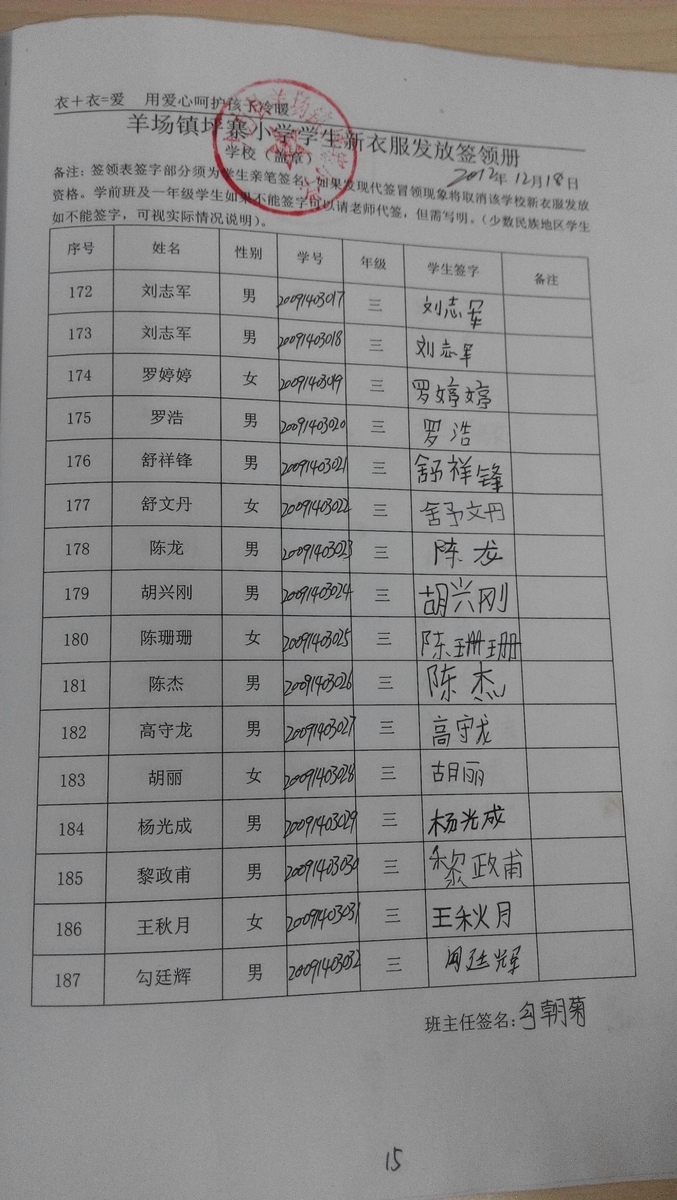 衣+衣=爱 用爱心呵护孩子冷暖
羊场镇坪寨小学学生新衣服发放签领册
学校（盖章） 2012年12月18日
备注：签领表签字部分须为学生亲笔签名，如果发现代签冒领现象将取消该学校新衣服发放
资格。学前班及一年级学生如果不能签字可以请老师代签，但需写明。（少数民族地区学生
如不能签字，可视实际情况说明）。
序号 姓名 性别 学号 年级 学生签字 备注
172 刘志军 男 20091403017 三 刘志军
173 刘志军 男 20091403018 三 刘志军
174 罗婷婷 女 20091403019 三 罗婷婷
175 罗浩 男 20091403020 三 罗浩
176 舒祥锋 男 20091403021 三 舒祥锋
177 舒文丹 女 20091403022 三 舒文丹
178 陈龙 男 20091403023 三 陈龙
179 胡兴刚 男 20091403024 三 胡兴刚
180 陈珊珊 女 20091403025 三 陈珊珊
181 陈杰 男 20091403026 三 陈杰
182 高守龙 男 20091403027 三 高守龙
183 胡丽 女 20091403028 三 胡丽
184 杨光成 男 20091403029 三 杨光成
185 黎政甫 男 20091403030 三 黎政甫
186 王秋月 女 20091403031 三 王秋月
187 勾廷辉 男 20091403032 三 廷辉
班主任签名：勾朝菊
15